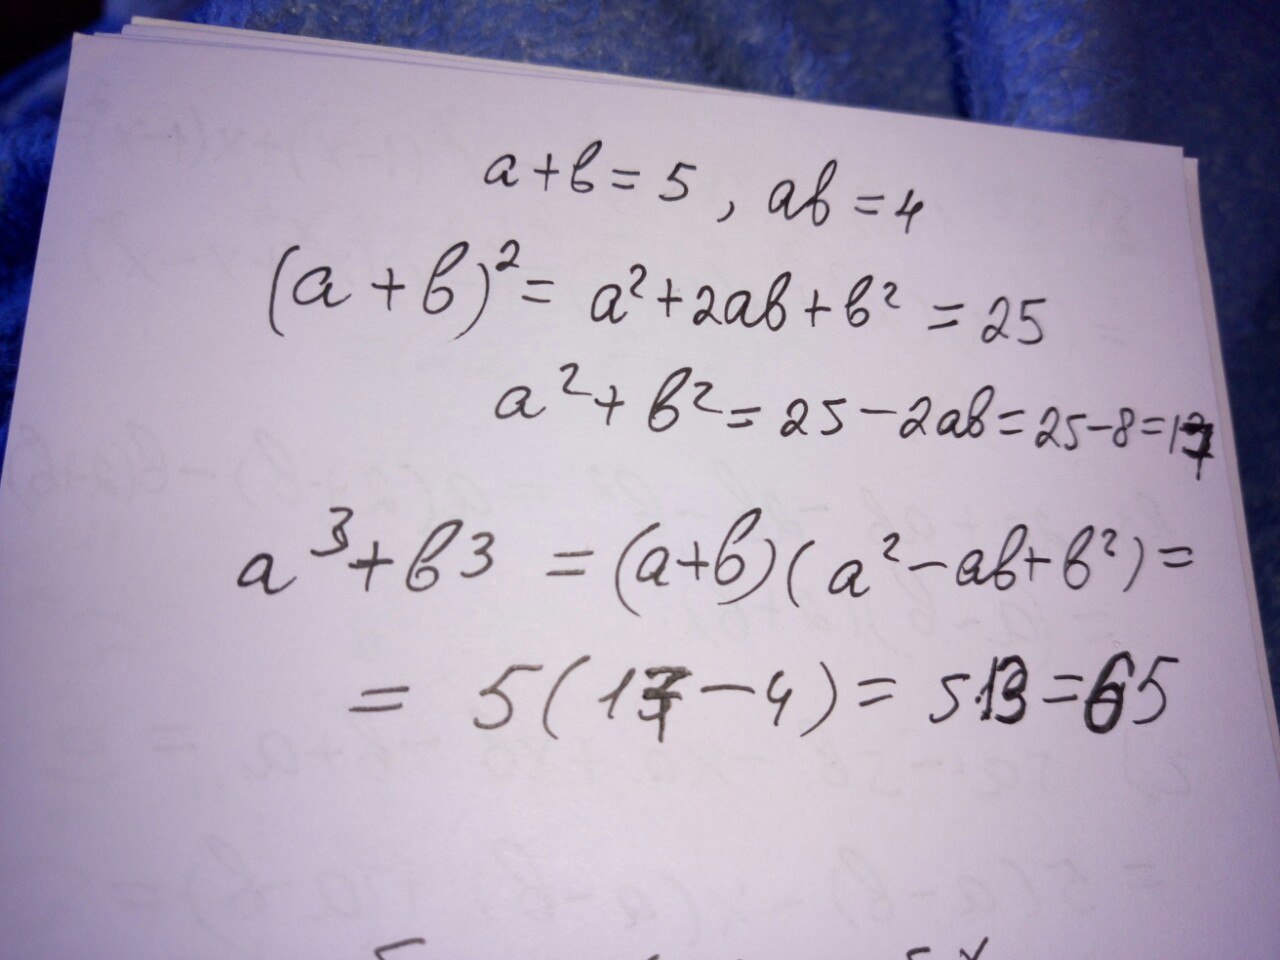 a+b=5, ab=4
(a+b)²= a²+2ab+b² =25
a²+b²=25-2ab=25-8=17
a³+b3 =(a+b)(a²-ab+b²)=
= 5(17-4)=5·13=65